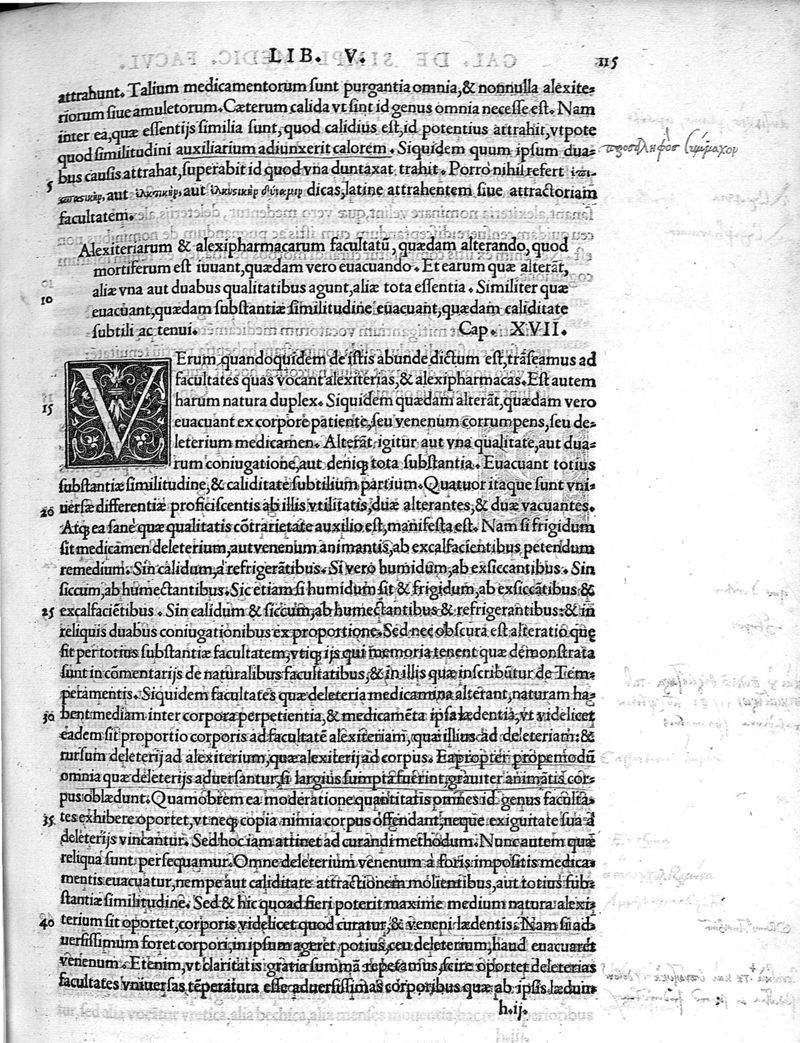 LIB. V. 115
attrahunt. Talium medicamentorum sunt purgantia omnia, & nonnulla alexite=
riorum siue amuletorum. Cæterum calida vt sint id genus omnia necesse est. Nam
inter ea, quæ essentijs similia sunt, quod calidius est, id potentius attrahit, vtpote
quod similitudini auxiliarium adiunxerit calorem. Siquidem quum ipsum dua=
bus causis attrahat, superabit id quod vna duntaxat trahit. Porro nihil refert
5 aut ἑλκτικὴν, aut ἑλκυστικὴν δύναμιν dicas, latine attrahentem siue attractoriam
facultatem.
Alexiteriarum & alexipharmacarum facultatū, quædam alterando, quod
mortiferum est iuuant, quædam vero euacuando. Et earum quæ alterāt,
10 aliæ vna aut duabus qualitatibus agunt, aliæ tota essentia. Similiter quæ
euacuant, quædam substantiæ similitudine euacuant, quædam caliditate
subtili ac tenui. Cap. XVII.
VErum, quandoquidem de istis abunde dictum est, trāseamus ad
facultates quas vocant alexiterias, & alexipharmacas. Est autem
15 harum natura duplex. Siquidem quædam alterāt, quædam vero
euacuant ex corpore patiente, seu venenum corrumpens, seu de=
leterium medicamen. Alterāt igitur aut vna qualitate, aut dua=
rum coniugatione, aut deniq; tota substantia. Euacuant totius
substantiæ similitudine, & caliditate subtilium partium. Quatuor itaque sunt vni=
20 uersæ differentiæ proficiscentis ab illis vtilitatis, duæ alterantes, & duæ vacuantes.
Atq; ea sane quæ qualitatis cōtrarietate auxilio est, manifesta est. Nam si frigidum
sit medicamen deleterium, aut venenum animantis, ab excalfacientibus petendum
remedium. Sin calidum, a refrigerātibus. Si vero humidum, ab exsiccantibus. Sin
siccum, ab humectantibus. Sic etiam si humidum sit & frigidum, ab exsiccātibus &
25 excalfaciētibus. Sin calidum & siccum, ab humectantibus & refrigerantibus: & in
reliquis duabus coniugationibus ex proportione. Sed nec obscura est alteratio quę
sit per totius substantiæ facultatem, vtiq; ijs qui memoria tenent quæ demonstrata
sunt in cōmentarijs de naturalibus facultatibus, & in illis quæ inscribūtur de Tem=
peramentis. Siquidem facultates quæ deleteria medicamina alterant, naturam ha=
30 bent mediam inter corpora perpetientia, & medicamēta ipsa lædentia, vt videlicet
eadem sit proportio corporis ad facultatē alexiteriam, quæ illius ad deleteriam: &
rursum deleterij ad alexiterium, quæ alexiterij ad corpus. Eapropter propemodū
omnia quæ deleterijs aduersantur, si largius sumpta fuerint, grauiter animātis cor=
pus oblædunt. Quamobrem ea moderatione quantitatis omnes id genus faculta=
35 tes exhibere oportet, vt neq; copia nimia corpus offendant, neque exiguitate sua a
deleterijs vincantur. Sed hoc iam attinet ad curandi methodum. Nunc autem quæ
reliqua sunt persequamur. Omne deleterium venenum a foris impositis medica=
mentis euacuatur, nempe aut caliditate attractionem molientibus, aut totius sub=
stantiæ similitudine. Sed & hic quoad fieri poterit maxime medium natura alexi=
40 terium sit oportet, corporis videlicet quod curatur, & veneni lædentis. Nam si ad=
uersissimum foret corpori, in ipsum ageret potius, ceu deleterium, haud euacuaret
venenum. Etenim, vt claritatis gratia summā repetamus, scire oportet deleterias
facultates vniuersas tēperatura esse aduersissimas corporibus quæ ab ipsis lædun=
h.ij.